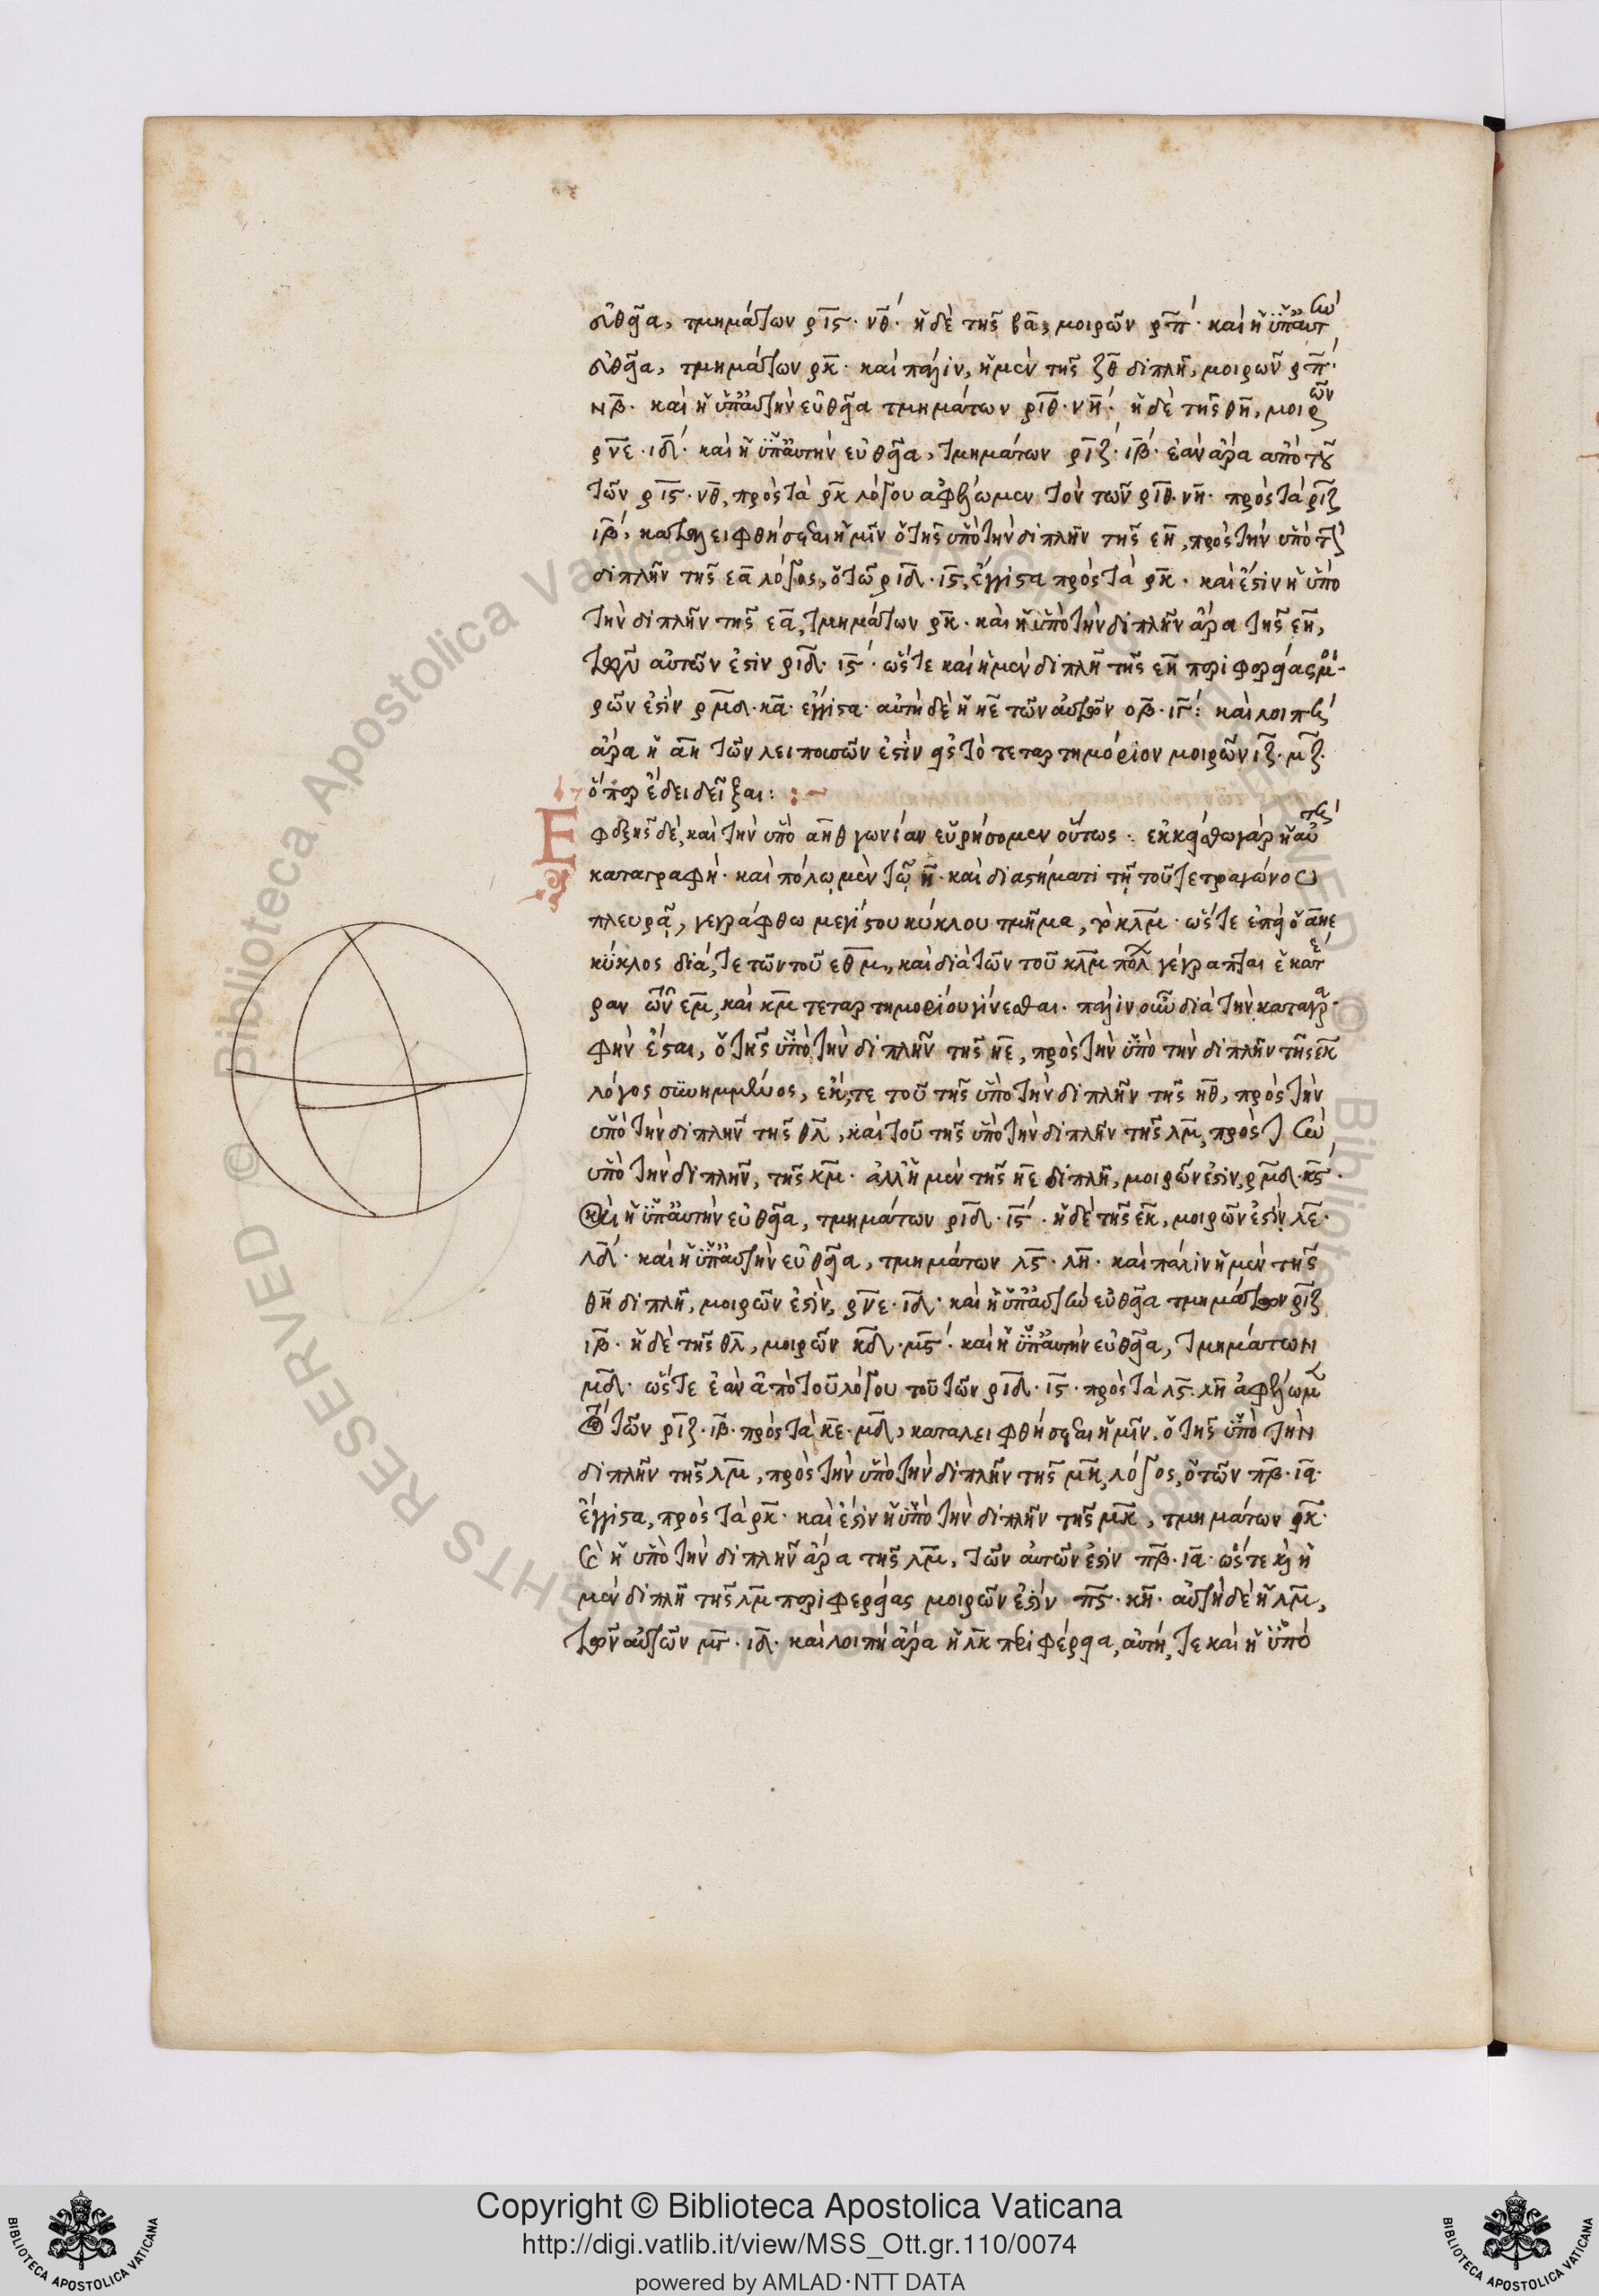 εὐθεῖα, τμημάτων ρ̅ι̅ς̅ · ν̅θ̅ · ἡ δὲ τῆς β̅α̅, μοιρῶν ρ̅π̅ · καὶ ἡ ὑπ' αὐτὴν
εὐθεῖα, τμημάτων ρ̅κ̅ · καὶ πάλιν, ἡ μὲν τῆς ζ̅θ̅ διπλῆ, μοιρῶν
ν̅β̅ · καὶ ἡ ὑπ' αὐτὴν εὐθεῖα τμημάτων ρ̅ι̅θ̅ · ν̅η̅ · ἡ δὲ τῆς θ̅η̅, μοιρῶν
ρ̅ν̅ε̅ · ι̅δ̅ · καὶ ἡ ὑπ' αὐτὴν εὐθεῖα, τμημάτων ρ̅ι̅ζ̅ · ι̅β̅ · ἐὰν ἄρα ἀπὸ τοῦ
τῶν ρ̅ι̅ς̅ · ν̅θ̅, πρὸς τὰ ρ̅κ̅ λόγου ἀφέλωμεν τὸν τῶν ρ̅ι̅θ̅ · ν̅η̅ · πρὸς τὰ ρ̅ι̅ζ̅
ι̅β̅, καταλειφθήσεται ἡμῖν ὁ τῆς ὑπὸ τὴν διπλῆν τῆς ε̅η̅, πρὸς τὴν ὑπὸ τὴν
διπλῆν τῆς ε̅α̅ λόγος, ὁ τῶν ρ̅ι̅δ̅ · ι̅ς̅, ἔγγιστα πρὸς τὰ ρ̅κ̅ · καὶ ἔστιν ἡ ὑπὸ
τὴν διπλῆν τῆς ε̅α̅, τμημάτων ρ̅κ̅ · καὶ ἡ ὑπὸ τὴν διπλῆν ἄρα τῆς ε̅η̅,
τῶν αὐτῶν ἐστιν ρ̅ι̅δ̅ · ι̅ς̅ · ὥστε καὶ ἡ μὲν διπλῆ τῆς ε̅η̅ περιφερείας μοι-
ρῶν ἐστὶν ρ̅μ̅δ̅ · κ̅α̅ · ἔγγιστα · αὐτὴ δὲ ἡ η̅ε̅ τῶν αὐτῶν ο̅β̅ · ι̅γ̅ : καὶ λοιπὴ
ἄρα ἡ α̅η̅ τῶν λειπουσῶν ἐστὶν εἰς τὸ τεταρτημόριον μοιρῶν ι̅ζ̅ · μ̅ζ̅ ·
ὅπερ ἔδει δεῖξαι :
Ἐφεξῆς δὲ, καὶ τὴν ὑπὸ α̅η̅θ̅ γωνίαν εὑρήσομεν οὕτως · ἐκκείσθω γὰρ ἡ αὐτὴ
καταγραφή · καὶ πόλῳ μὲν τῷ η̅ · καὶ διαστήματι τῇ τοῦ τετραγώνου
πλευρᾷ, γεγράφθω μεγίστου κύκλου τμῆμα, τὸ κ̅λ̅μ̅ · ὥστε ἐπεὶ ὁ α̅η̅ε̅
κύκλος διά, τε τῶν τοῦ ε̅θ̅μ̅, καὶ διὰ τῶν τοῦ κ̅λ̅μ̅ πόλων γέγραπται ἑκατέ
ραν τῶν ε̅μ̅, καὶ κ̅μ̅ τεταρτημορίου γίνεσθαι · πάλιν οὖν διὰ τὴν καταγρα-
φὴν ἔσται, ὁ τῆς ὑπὸ τὴν διπλῆν τῆς η̅ε̅, πρὸς τὴν ὑπὸ τὴν διπλῆν τῆς ε̅κ̅
λόγος συνημμένος, ἔκ, τε τοῦ τῆς ὑπὸ τὴν διπλῆν τῆς η̅θ̅, πρὸς τὴν
ὑπὸ τὴν διπλῆν τῆς θ̅λ̅, καὶ τοῦ τῆς ὑπὸ τὴν διπλῆν τῆς λ̅μ̅, πρὸς τὴν
ὑπὸ τὴν διπλῆν, τῆς κ̅μ̅ · ἀλλ' ἡ μὲν τῆς η̅ε̅ διπλῆ, μοιρῶν ἐστὶν, ρ̅μ̅δ̅ · κ̅ς̅ ·
καὶ ἡ ὑπ' αὐτὴν εὐθεῖα, τμημάτων ρ̅ι̅δ̅ · ι̅ς̅ · ἡ δὲ τῆς ε̅κ̅, μοιρῶν ἐστὶν λ̅ε̅ ·
λ̅δ̅ · καὶ ἡ ὑπ' αὐτὴν εὐθεῖα, τμημάτων λ̅ς̅ · λ̅η̅ · καὶ πάλιν ἡ μὲν τῆς
θ̅η̅ διπλῆ, μοιρῶν ἐστὶν, ρ̅ν̅ε̅ · ι̅δ̅ · καὶ ἡ ὑπ' αὐτὴν εὐθεῖα τμημάτων ρ̅ι̅ζ̅
ι̅β̅ · ἡ δὲ τῆς θ̅λ̅, μοιρῶν κ̅δ̅ · μ̅ς̅ · καὶ ἡ ὑπ' αὐτὴν εὐθεῖα, τμημάτων
μ̅δ̅ · ὥστε ἐὰν ἀπὸ τοῦ λόγου τοῦ τῶν ρ̅ι̅δ̅ · ι̅ς̅ · πρὸς τὰ λ̅ς̅ · λ̅η̅ ἀφέλωμεν
τὸν τῶν ρ̅ι̅ζ̅ · ι̅β̅ · πρὸς τὰ κ̅ε̅ · μ̅δ̅, καταλειφθήσεται ἡμῖν · ὁ τῆς ὑπὸ τὴν
διπλῆν τῆς λ̅μ̅, πρὸς τὴν ὑπὸ τὴν διπλῆν τῆς μ̅κ̅, λόγος, ὁ τῶν π̅β̅ · ι̅α̅ ·
ἔγγιστα, πρὸς τὰ ρ̅κ̅ · καὶ ἔστιν ἡ ὑπὸ τὴν διπλῆν τῆς μ̅κ̅, τμημάτων ρ̅κ̅ ·
καὶ ἡ ὑπὸ τὴν διπλῆν ἄρα τῆς λ̅μ̅, τῶν αὐτῶν ἐστιν π̅β̅ · ι̅α̅ · ὥστε καὶ ἡ
μὲν διπλῆ τῆς λ̅μ̅ περιφερείας μοιρῶν ἐστὶν π̅ς̅ · κ̅η̅ · αὐτὴ δὲ ἡ λ̅μ̅,
τῶν αὐτῶν μ̅γ̅ · ι̅δ̅ · καὶ λοιπὴ ἄρα ἡ λ̅κ̅ περιφέρεια, αὐτή, τε καὶ ἡ ὑπὸ
© Biblioteca Apostolica Vaticana
ALL RIGHTS RESERVED
Copyright © Biblioteca Apostolica Vaticana
http://digi.vatlib.it/view/MSS_Ott.gr.110/0074
powered by AMLAD·NTT DATA
BIBLIOTECA APOSTOLICA VATICANA
BIBLIOTECA APOSTOLICA VATICANA